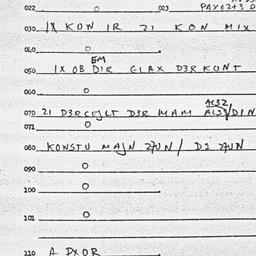 022 O 023 PAY02+3 D
030 IX KON IR 21 KON MIX
040 O
EM
050 IX OB DIR GLAX D3R KONT
060 O
AL32
070 21 D3RCEJLT D3R MAM AL35/DIN
071 O
080 KONSTU MAJN 27UN / D2 27UN
090 O
100 O
101 O
110 A DXOR